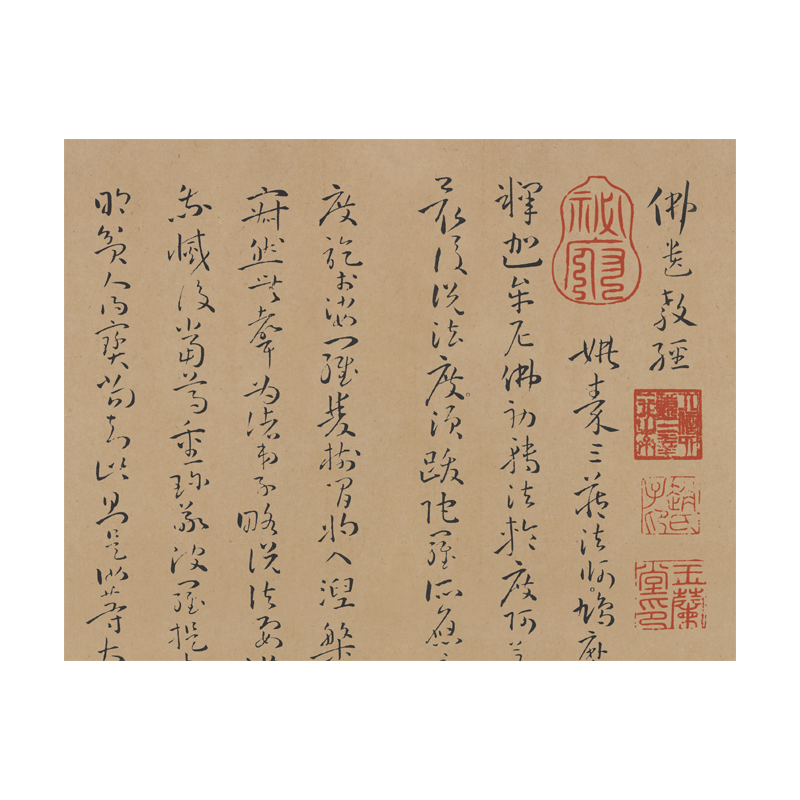 佛遺教經
姚秦三藏法師鳩摩
釋迦牟尼佛初轉法輪度阿若
最後說法度須跋陀羅所應
度訖於娑羅雙樹間將入涅槃
寂然無聲為諸弟子略說法要
我滅後當尊重珍敬波羅提
明貧人得寶當知此則是汝等大
祕府
趙氏子印
玉蘭堂印